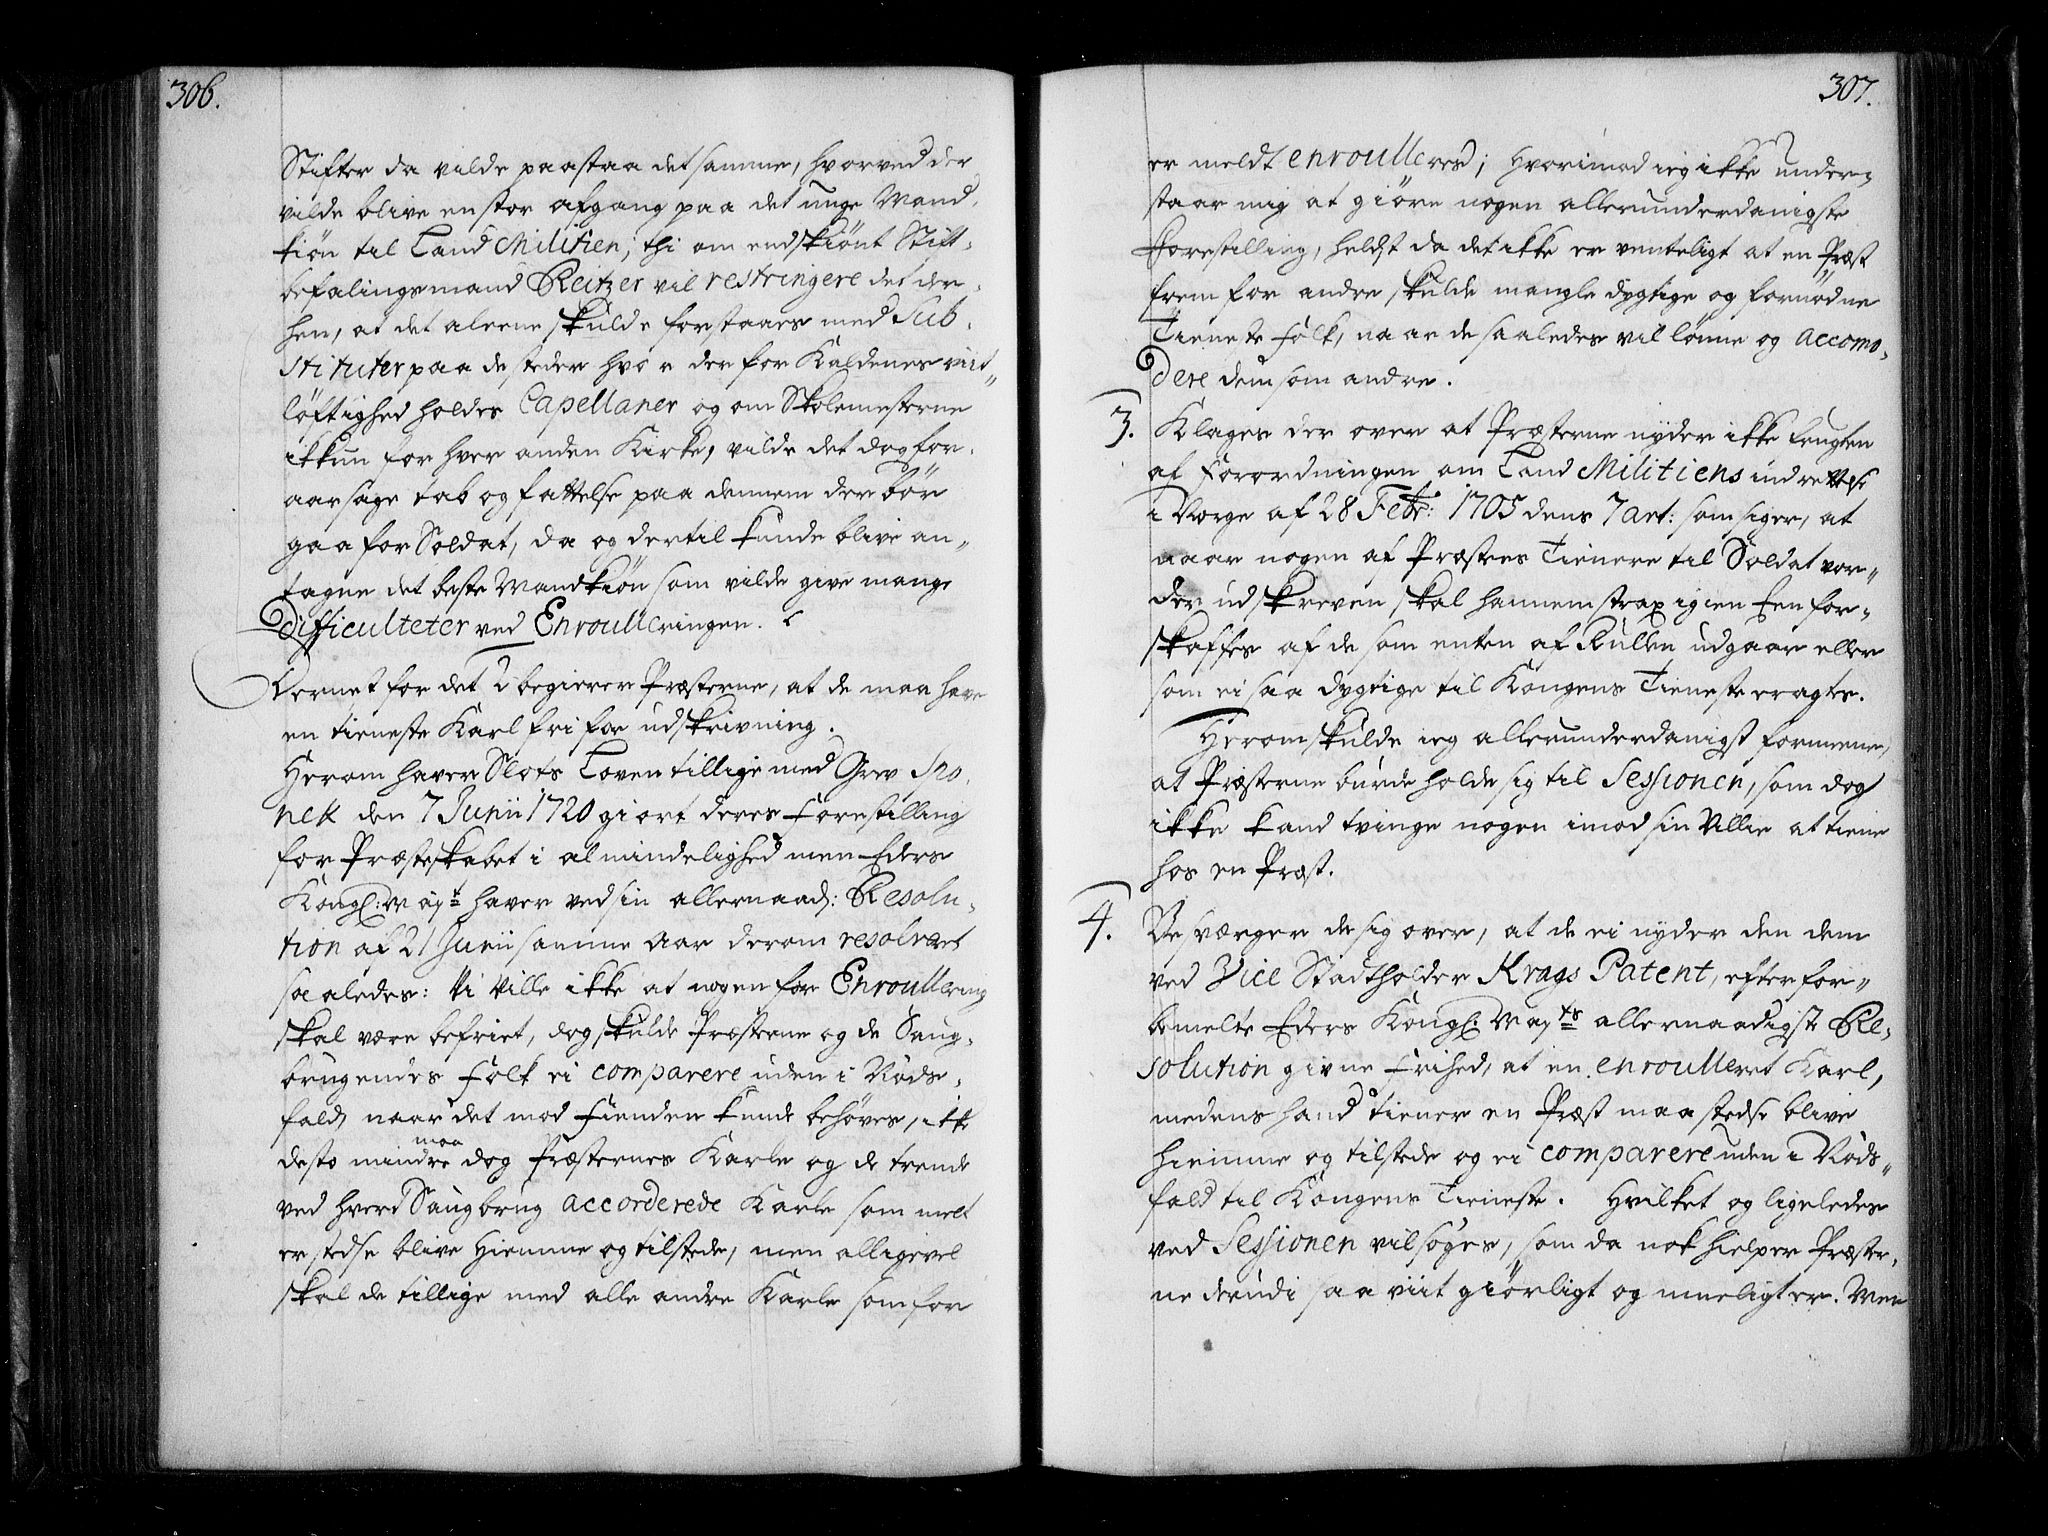 306.
Stifter da vilde paastaa det samme, hvorved der
vilde blive en stor afgang paa det unge Mand-
kiøn til Land Militien; thi om endskiönt Stift-
befalingsmand Reitzer vil restringere det der-
hen, at det aleene skulde forstaaes med Sub-
stituter paa de steder hvor der for Kaldenes vit-
löftighed holdes Capellaner og om Skolemesterne
ikkun for hver anden Kirke, vilde det dog for-
aarsage tab og fattelse paa dennem der bör
gaa for Soldat, da og dertil kunde blive an-
tagne det beste Mandkiön som vilde give mange
difficulteter ved Enroulleringen.
Dernest for det 2 begierer Præsterne, at de maa have
en tieneste Karl fri for udskrivning.
Herom haver Slots Loven tillige med Grev Spo-
nek den 7 Junii 1720 giort deres Forestilling
for Præsteskabet i almindelighed men Eders
Kongl: May.t haver ved sin allernaad: Resolu-
tion af 21 Junii samme Aar derom resolveret
saaledes: Vi Ville ikke at nogen for Enroullering
skal være befriet, dog skulde Præsterne og de Saug-
brugendes Folk ei comparere uden i Nöds-
fald, naar det mod Fienden kunde behøves, ikke
desto mindre maa dog Præsternes Karle og de trende
ved hverd Saugbrug accorderede Karle som melt
er stedse blive Hiemme og tilstede, men alligevel
skal de tillige med alle andre Karle som for
307.
er meldt enroulleres; Hvorimod ieg ikke under-
staar mig at giöre nogen allerunderdanigste
Forestilling, heldst da det ikke er venteligt at en Præst
frem for andre skulde mangle dygtige og fornödne
Tieneste Folk, naar de saaledes vil lønne og accomo-
dere dem som andre.
3. Klages der over at Præsterne nyder ikke Frugten
af Forordningen om Land Militiens indrettelse
i Norge af 28 Febr: 1705 dens 7 art: som siger, at
naar nogen af Præstens Tienere til Soldat vor-
der udskreven skal hannem strax igien Een for-
skaffes af de som enten af Rullen udgaar eller
som ei saa dygtige til Kongens Tieneste eragtes.
Herom skulde ieg allerunderdanigst formeene,
at Præsterne burde holde sig til Sessionen, som dog
ikke kand tvinge nogen imod sin Villie at tiene
hos en Præst.
4. Besværger de sig over, at de ei nyder den dem
ved Vice Stadtholder Krags Patent, efter for-
bemelte Eders Kongl: May.ts allernaadigste Re-
solution givne Frihed, at en enroulleret Karl,
medens hand tiener en Præst maa stedse blive
hiemme og tilstede og ei comparere uden i Nöds-
fald til Kongens Tieneste. Hvilket og ligeledes
ved Sessionen vil söges, som da nok hielper Præster-
ne derudi saa viit giørligt og mueligt er. Men